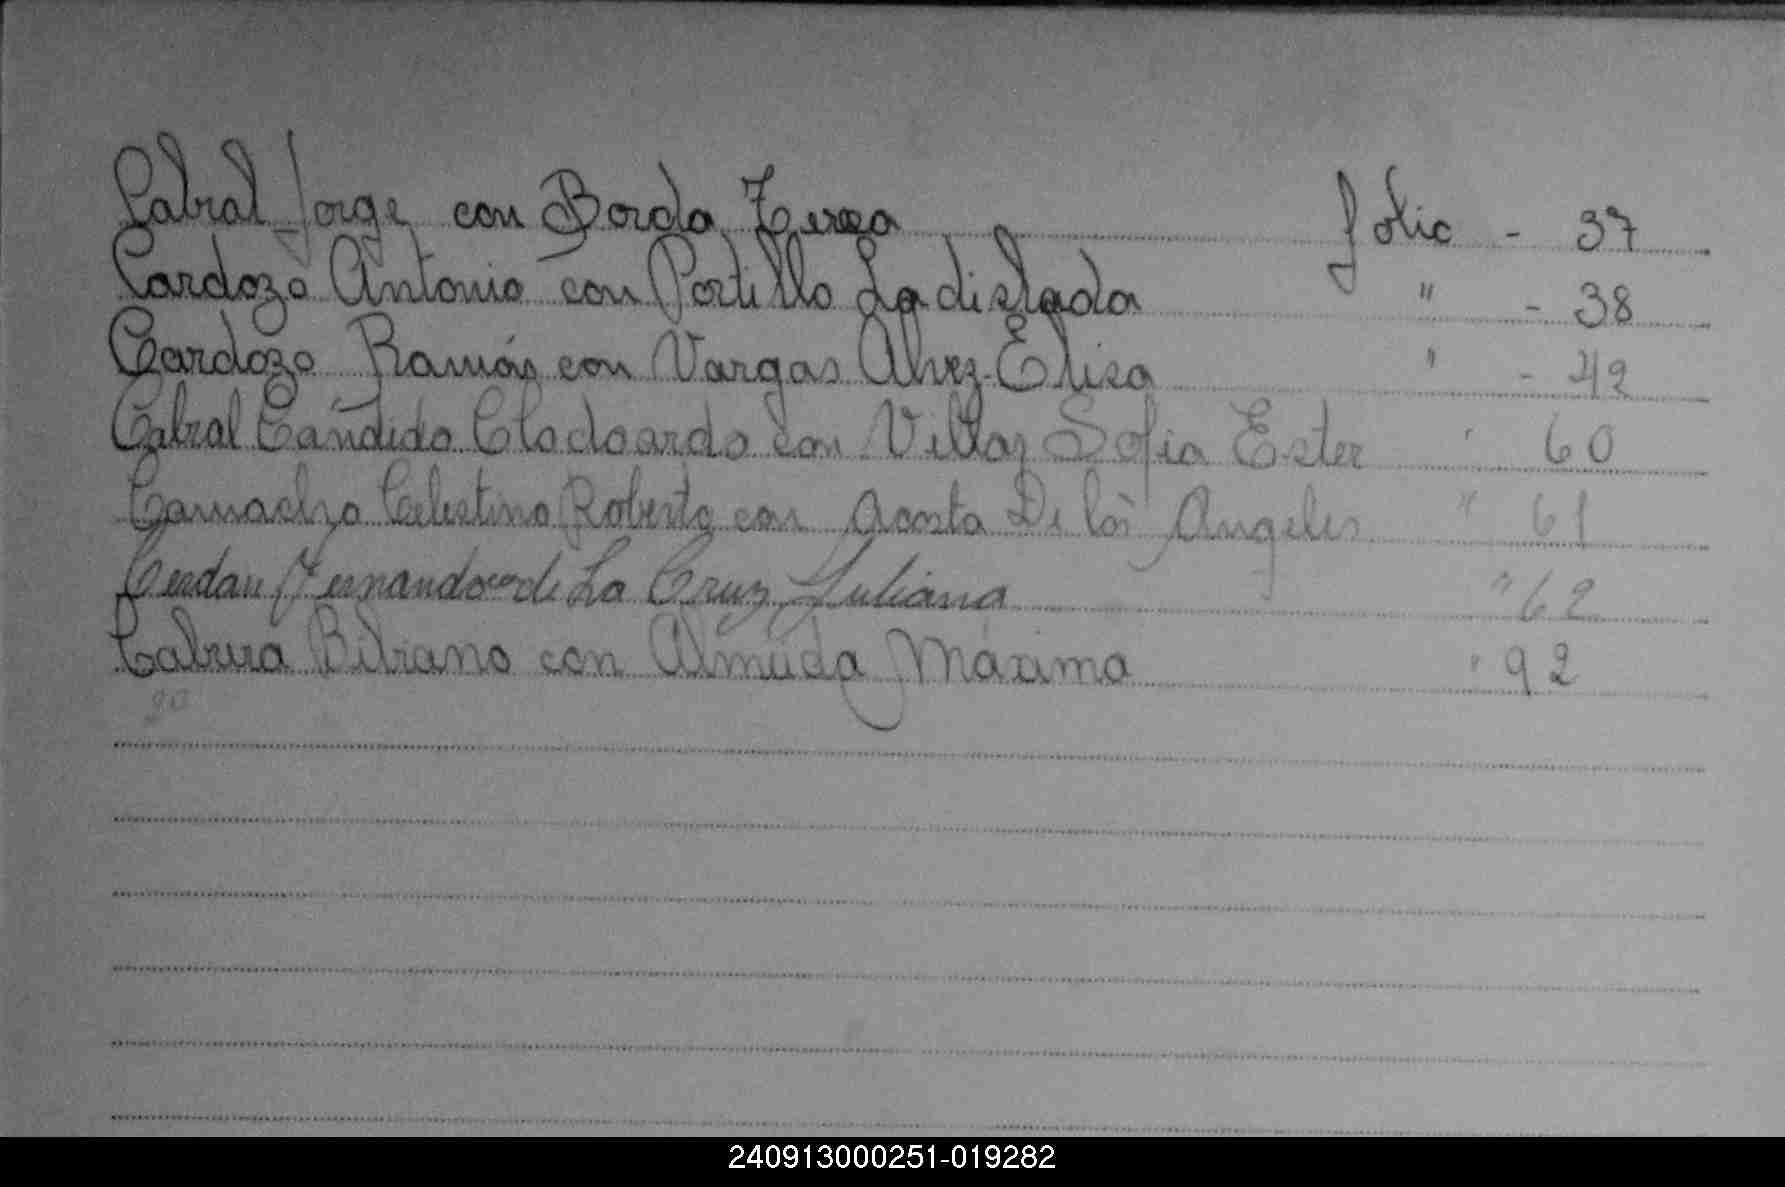 Cabral Jorge con Borda Teresa folio - 37
Cardozo Antonio con Portillo Ladislada " - 38
Cardozo Ramón con Vargas Alvez Elisa " - 42
Cabral Cándido Clodoardo con Villaz Sofia Ester " 60
Camacho Celestino Roberto con Acosta De los Angeles " 61
Cerdan Fernando con de La Cruz Juliana " 62
Cabrera Bibiano con Almeida Máxima " 92
240913000251-019282